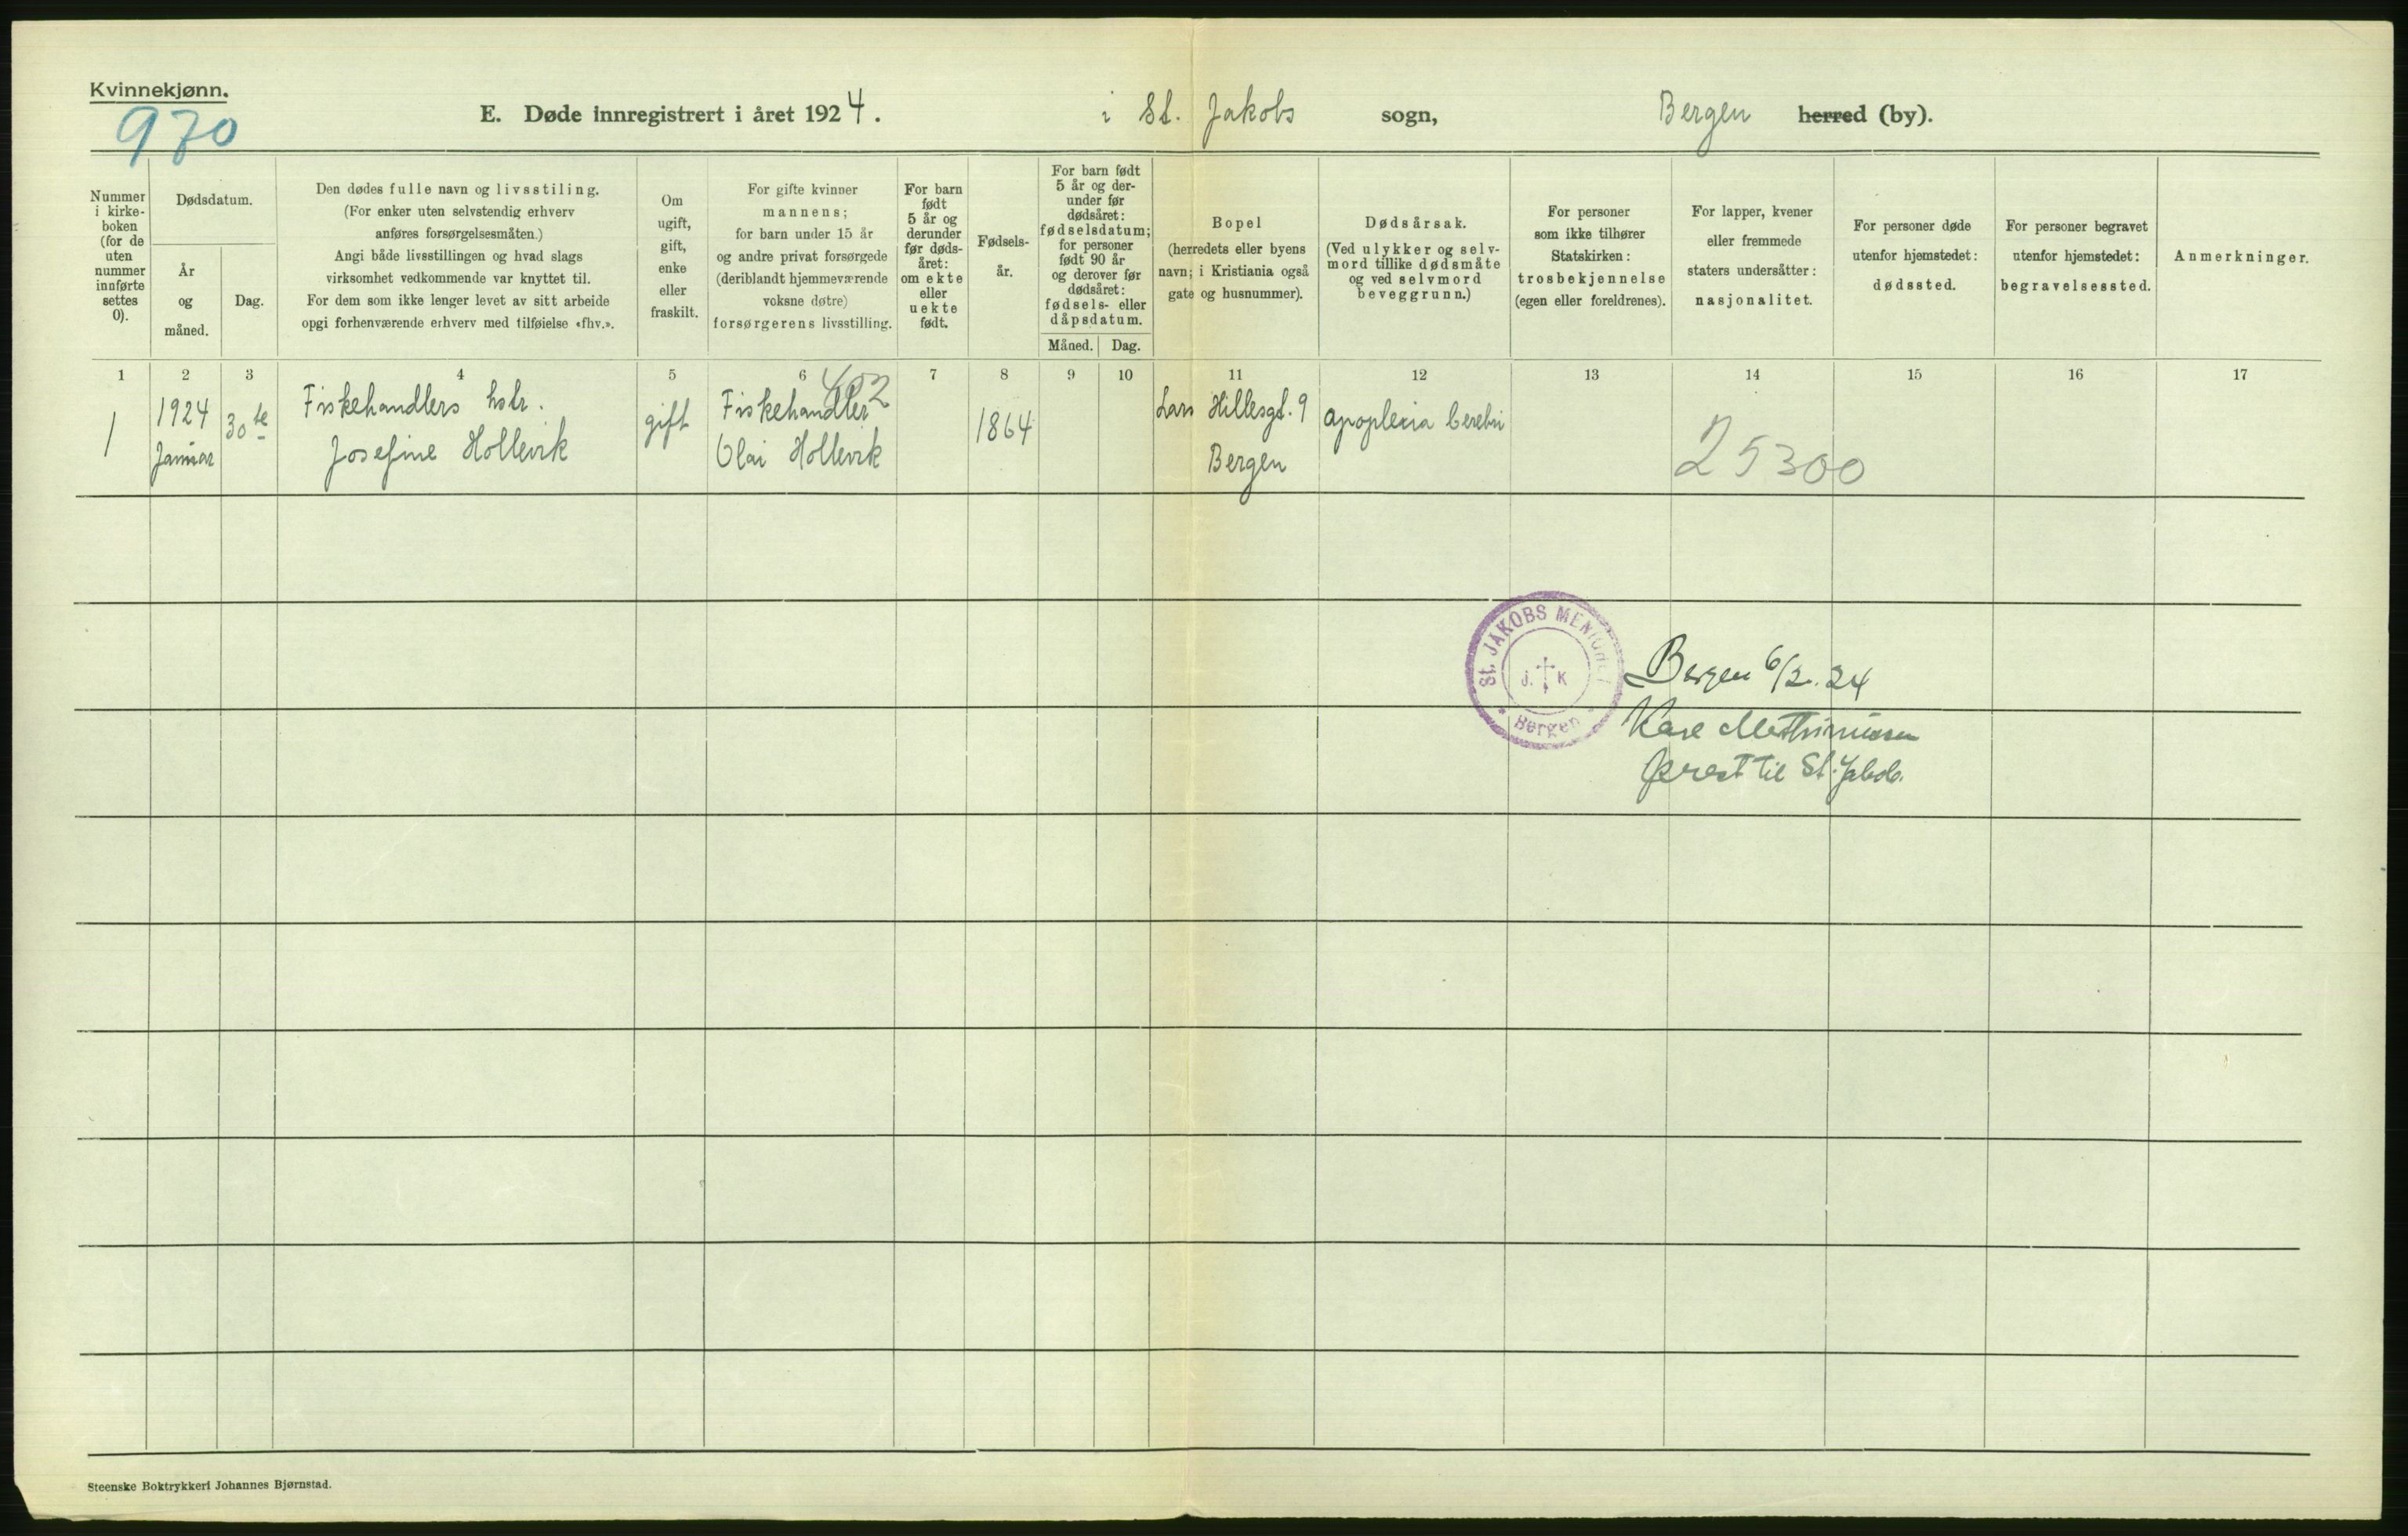 Kvinnekjønn.
970
E. Døde innregistrert i året 1924. i St. Jakobs sogn, Bergen herred (by).
Nummer
i kirke-
boken
(for de
uten
nummer
innførte
settes
0).
Dødsdatum.
År
og
måned.
Dag.
Den dødes fulle navn og livsstiling.
(For enker uten selvstendig erhverv
anføres forsørgelsesmåten.)
Angi både livsstillingen og hvad slags
virksomhet vedkommende var knyttet til.
For dem som ikke lenger levet av sitt arbeide
opgi forhenværende erhverv med tilføielse «fhv.».
Om
ugift,
gift,
enke
eller
fraskilt.
For gifte kvinner
mannens;
for barn under 15 år
og andre privat forsørgede
(deriblandt hjemmeværende
voksne døtre)
forsørgerens livsstilling.
For barn
født
5 år og
derunder
før døds-
året:
om ekte
eller
uekte
født.
Fødsels-
år.
For barn født
5 år og der-
under før
dødsåret:
fødselsdatum;
for personer
født 90 år
og derover før
dødsåret:
fødsels- eller
dåpsdatum.
Måned.
Dag.
Bopel
(herredets eller byens
navn; i Kristiania også
gate og husnummer).
Dødsårsak.
(Ved ulykker og selv-
mord tillike dødsmåte
og ved selvmord
beveggrunn.)
For personer
som ikke tilhører
Statskirken:
trosbekjennelse
(egen eller foreldrenes).
For lapper, kvener
eller fremmede
staters undersåtter:
nasjonalitet.
For personer døde
utenfor hjemstedet:
dødssted.
For personer begravet
utenfor hjemstedet:
begravelsessted.
Anmerkninger.
1 2 3 4 5 6 7 8 9 10 11 12 13 14 15 16 17
402
1
1924
Januar
30te
Fiskehandlers hstr.
Josefine Hollevik
gift
Fiskehandler
Olai Hollevik
1864
Lars Hillesgt. 9
Bergen
apoplexia cerebri
25300
St. JAKOBS MENIGHET
J. K
Bergen
Bergen 6/2. 24
prest til St. Jakob.
Steenske Boktrykkeri Johannes Bjørnstad.